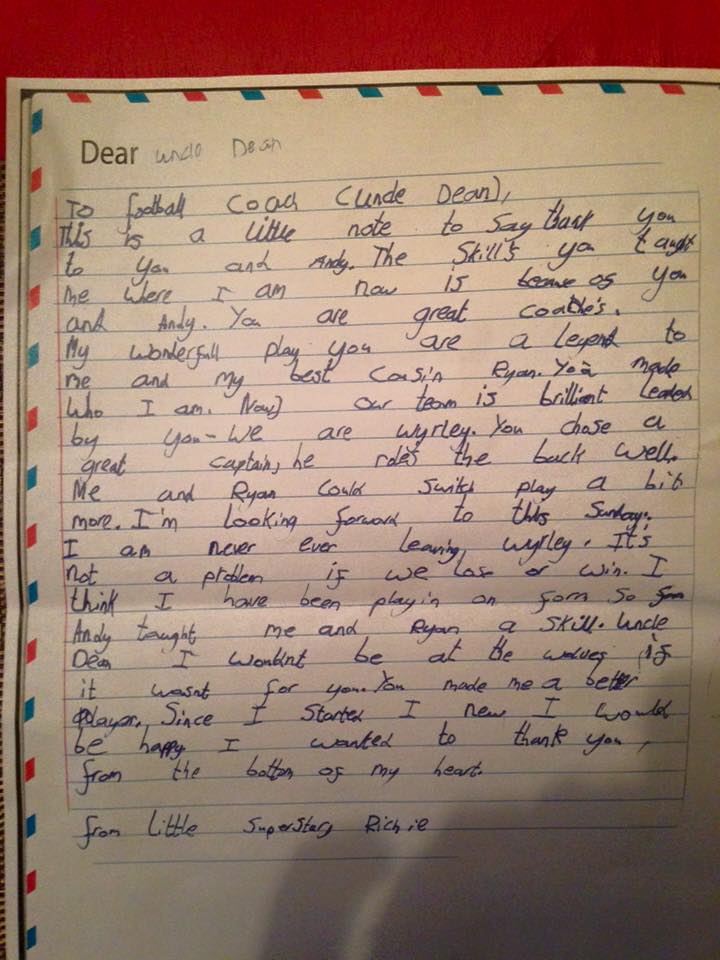 Dear uncle Dean
To football Coach (Uncle Dean),
This is a little note to say thank you
to you and Andy. The Skill's you taught
me where I am now is because of you
and Andy. You are great coathe's.
My wonderfull play you are a legend to
me and my best Cousin Ryan. You made
who I am. Now) our team is brilliant leaded
by you-we are wyrley. You chose a
great captain, he the back well.
Me and Ryan Could switch play a bit
more. I'm looking forward to this Sunday.
I am never ever leaving wyrley. It's
not a problem if we lose or win. I
think I have been playin on form so
Andy taught me and Ryan a skill. Uncle
Dean I wouldnt be at the wolves if
it wasnt for you. You made me a better
player. Since I Started I new I would
be happy I wanted to thank you,
from the bottom of my heart.
from Little SuperStar, Richie